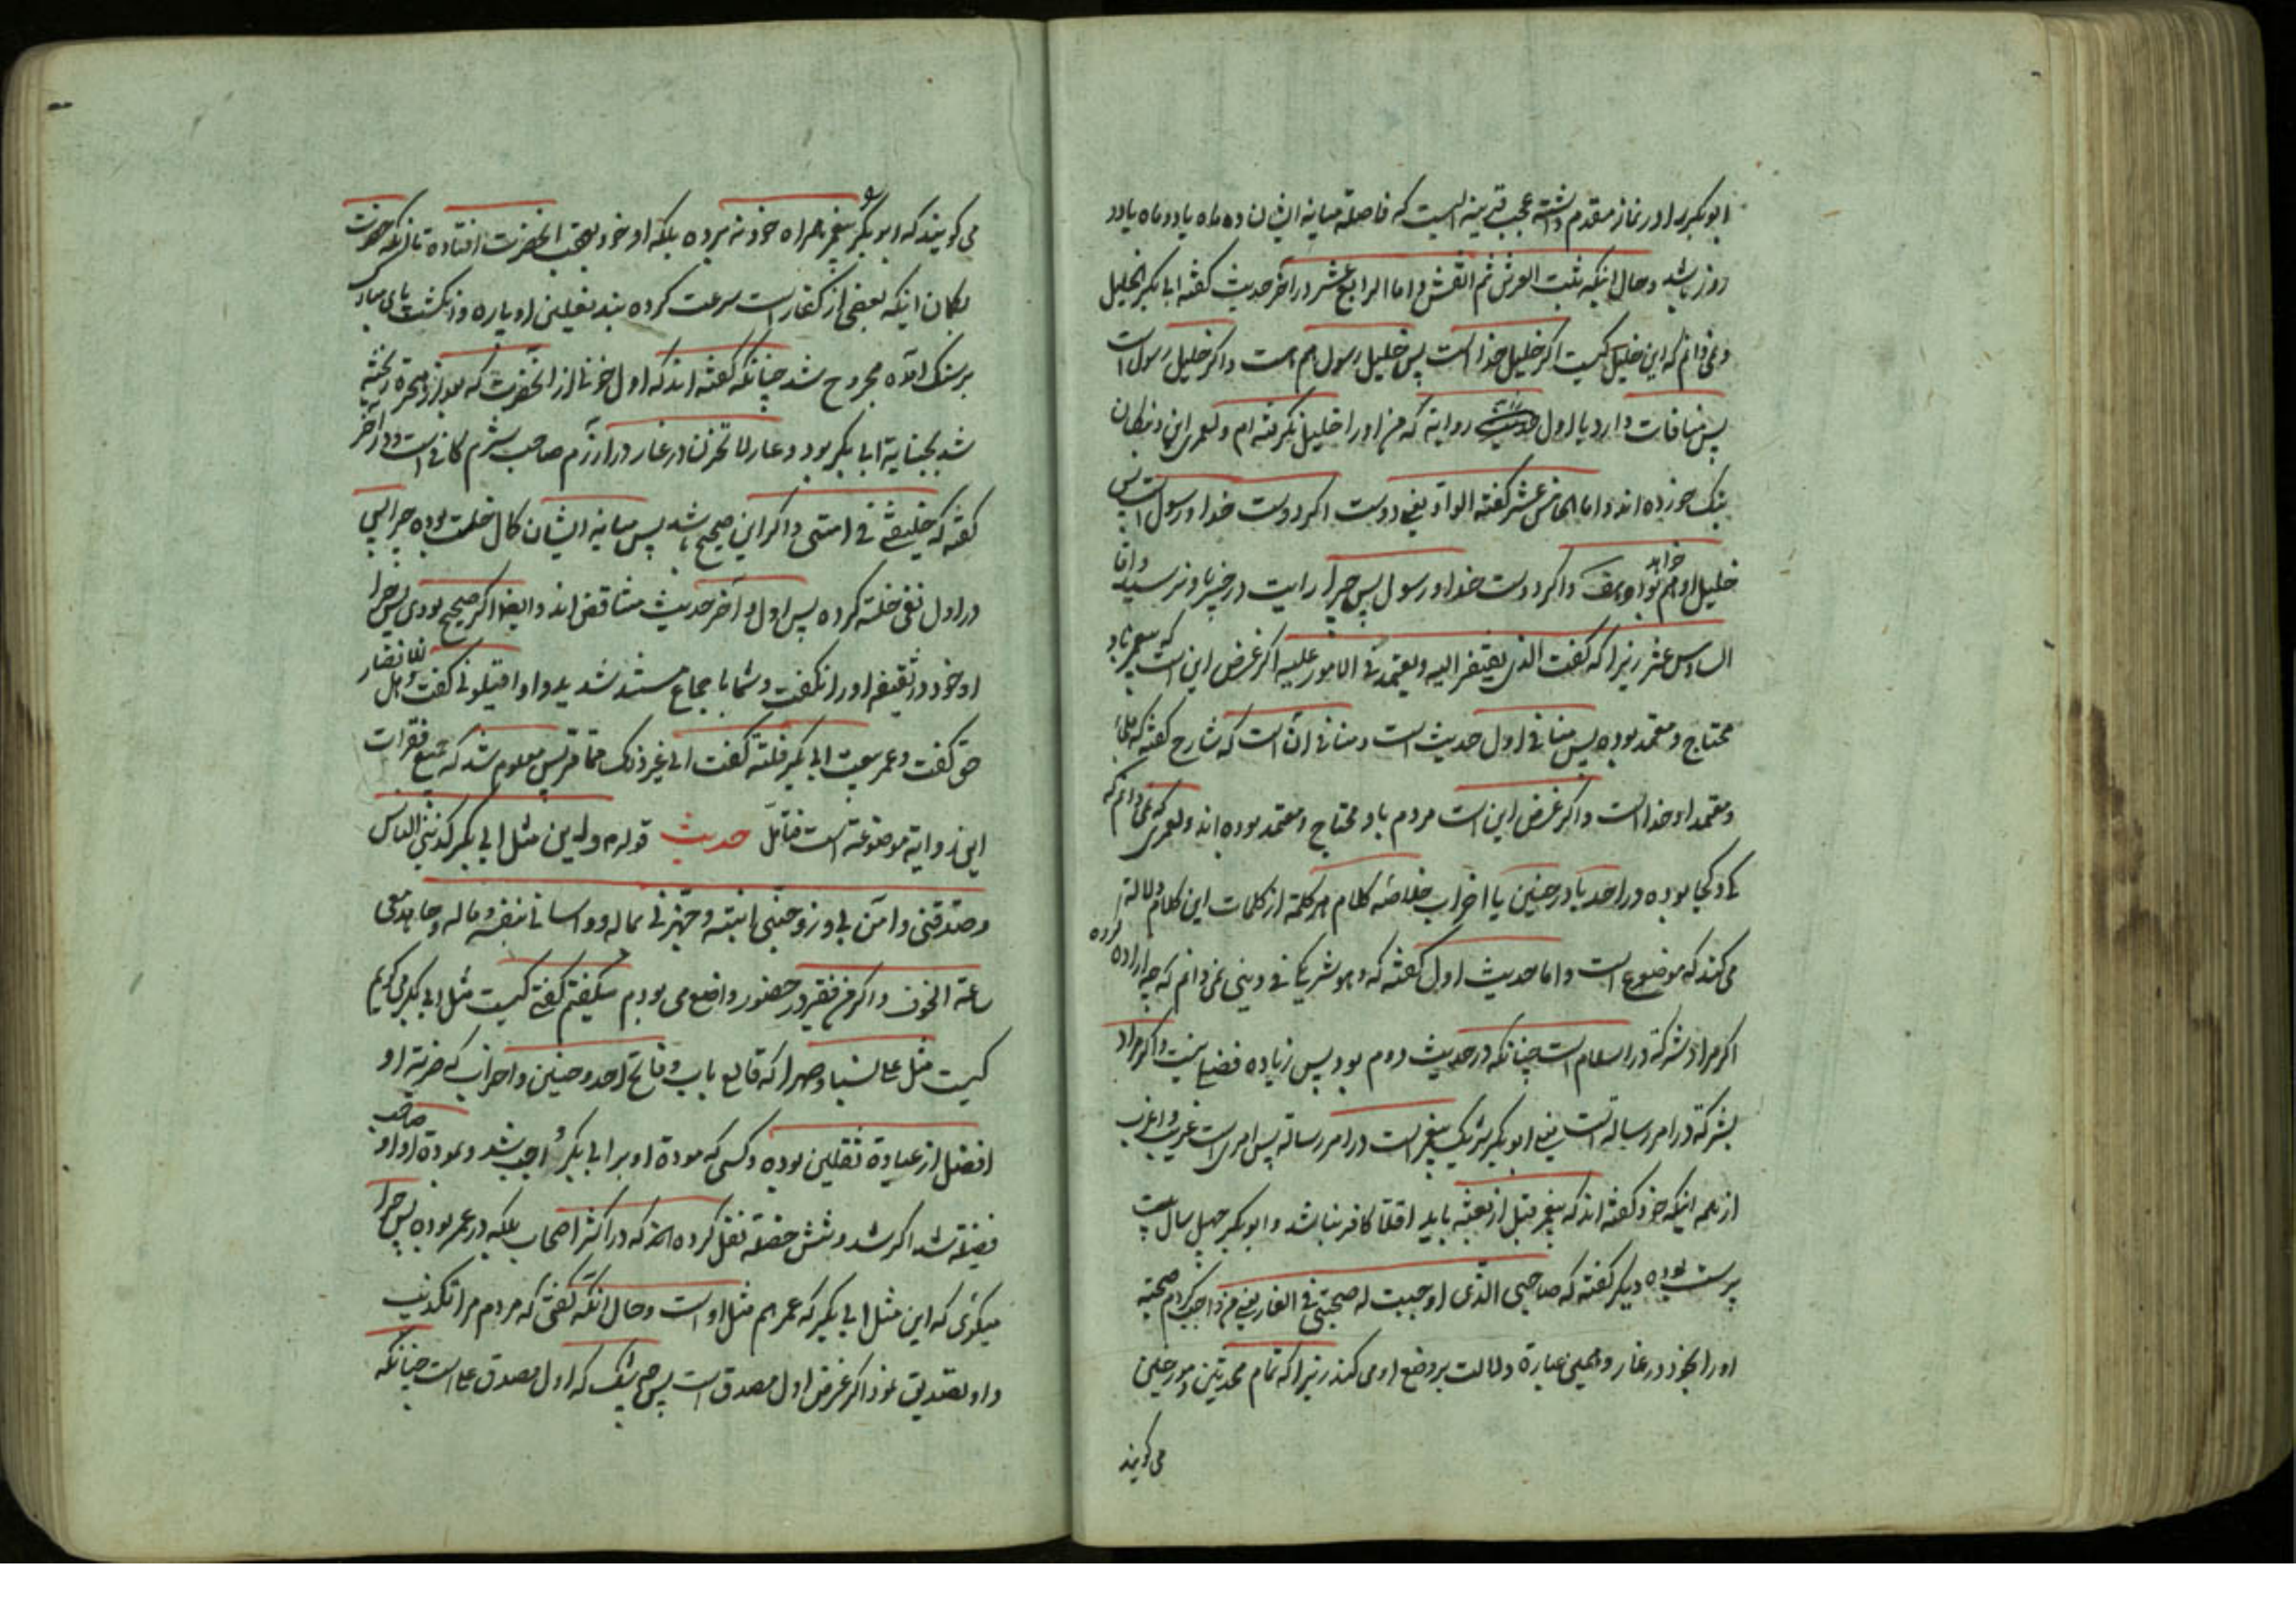 ابوبکر را در نماز مقدم داشته عجب قرینه ایست که فاصله میانه ایشان ده ماه یا دو ماه یا دو
روز باشد وحال اینکه ثبت العرش ثم انقش واما الرابع عشر در آخر حدیث گفته ابی بکر الخلیل
ونمی دانم که این خلیل کیست اگر خلیل خدا است پس خلیل رسول هم هست واگر خلیل رسول است
پس منافات دارد با اول روایة که من او را خلیل نگرفته ام ولعمری این
بنک خورده اند واما الخامس عشر گفته الواد یعنی دوست اگر دوست خدا ورسول است پس
خلیل او هم خواهد بود واگر دوست خدا ورسول پس چرا رایت در خیبر باو نرسید واما
السادس عشر زیرا که گفت الذی یفتقر الیه ویعتمد فی الامور علیه اگر غرض این است که پیغمبر باو
محتاج ومعتمد بوده پس منافی اول حدیث است ومنافی آن است که شارح گفته که ملجأ
ومعتمد او خدا است واگر غرض این است مردم باو محتاج ومعتمد بوده اند ولعمری که نمی دانم که
کی وکجا بوده در احد یا در حنین یا احزاب خلاصه کلام هر کلمة از کلمات این کلام دلالة
می کند که موضوع است واما حدیث اول گفته که وهو شریکی فی دینی نمی دانم که چه اراده کرده
اگر مراد شرکة در اسلام است چنانکه در حدیث دوم بود پس زیاده فضیلة نیست واگر مراد
بشرکة در امر رسالة است یعنی ابوبکر شریک پیغمبر است در امر رسالة پس امری است غریب واغرب
از همه اینکه خود گفته اند که پیغمبر قبل از بعثة باید اقلا کافر نباشد وابوبکر چهل سال بت
پرست بوده دیگر گفته که صاحبی الذی اوجبت له صحبتی فی الغار یعنی من واجب کردم صحبة
او را بخود در غار وهمین عبارة دلالت بر وضع او می کند زیرا که تمام محدثین ومورخین
می گویند
می گویند که ابوبکر را پیغمبر همراه خود نبرده بلکه او خود بعقب انحضرت افتاده تا آنکه حضرت
بگمان اینکه بعضی از کفار است سرعت کرده بند نعلین او پاره وانگشت پای مبارک
بر سنک آمده مجروح شد چنانکه گفته اند که اول خونی از انحضرت که بعد از هجرة ریخته
شد بجنایة ابی بکر بود وعار لا تحزن در غار در صاحب شرم کافی است ودر آخر
گفته که خلیفتی فی امتی واگر این صحیح باشد پس میانه ایشان کمال خلت بوده چرا پس
در اول نفی خلة کرده پس اول وآخر حدیث متناقض اند وایضا اگر صحیح بودی پس چرا
او خود در ثقیفه او را نگفت وشما باجماع مستند شدید واو اقیلونی گفت وهل للانصار
حق گفت وعمر بیعت ابی بکر فلتة گفت الی غیر ذلک مما مر پس معلوم شد که جمیع فقرات
این روایة موضوعة است فتأمل حدیث قوله م واین مثل ابی بکر کذبنی الناس
وصدقنی وآمن بی وزوجنی ابنته وجهزنی بماله وواسانی بنفسه وماله وجاهد معی
ساعة الخوف واگر من فقیر در حضور واضع می بودم میگفتم گفتی کیست مثل ابی بکر می گویم
کیست مثل علی نسبا وصهرا که قالع باب وفاتح احد وحنین واحزاب که ضربة او
افضل از عبادة ثقلین بوده وکسی که مودة او بر ابی بکر واجب شد وبمودة او او صاحب
فضیلة شد اگر شد وشش خصلة نقل کرده که در اکثر اصحاب بلکه در عمر بوده پس چرا
میگوئی که این مثل ابی بکر که عمر هم مثل او است وحال آنکه گفتی که مردم مرا تکذیب
واو تصدیق نمود اگر غرض اول مصدق است پس که اول مصدق علی است چنانکه